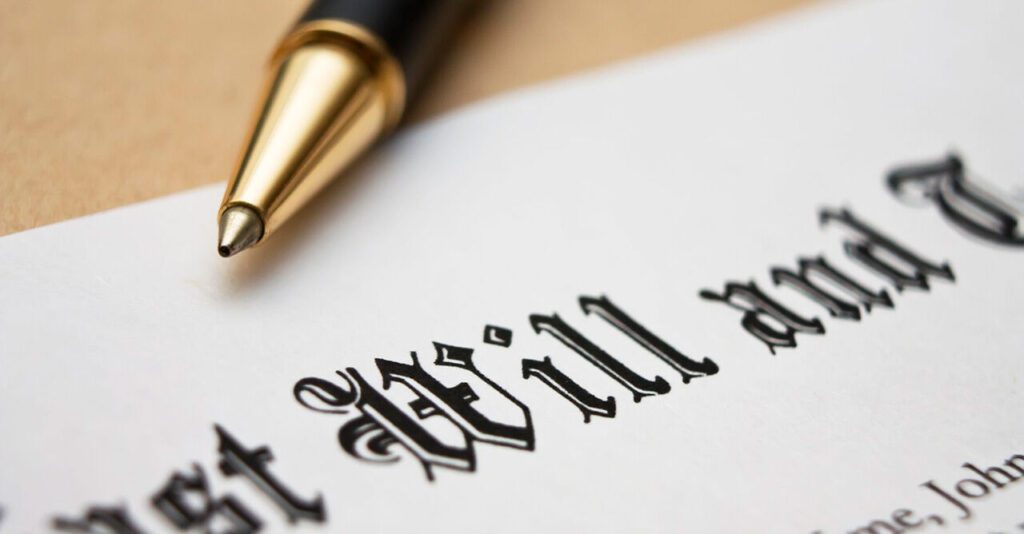 ast Will and T
me, John